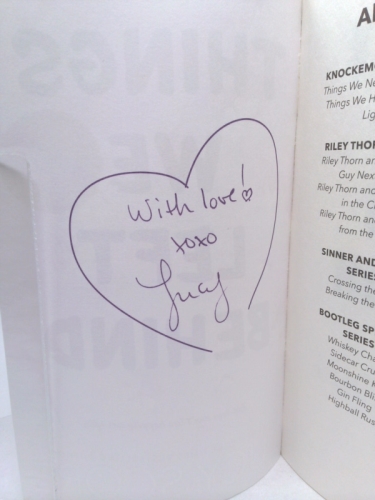 With love!
xoxo
Lucy
THINGS
WE
LEFT
BEHIND
Al
KNOCKEMO
Things We Ne
Things We H
Lig
RILEY THOR
Riley Thorn and
Guy Nex
Riley Thorn and
in the C
Riley Thorn and
from the
SINNER AND
SERIE
Crossing the
Breaking the
BOOTLEG SP
SERIES
Whiskey Cha
Sidecar Cru
Moonshine K
Bourbon Bli
Gin Fling
Highball Rus